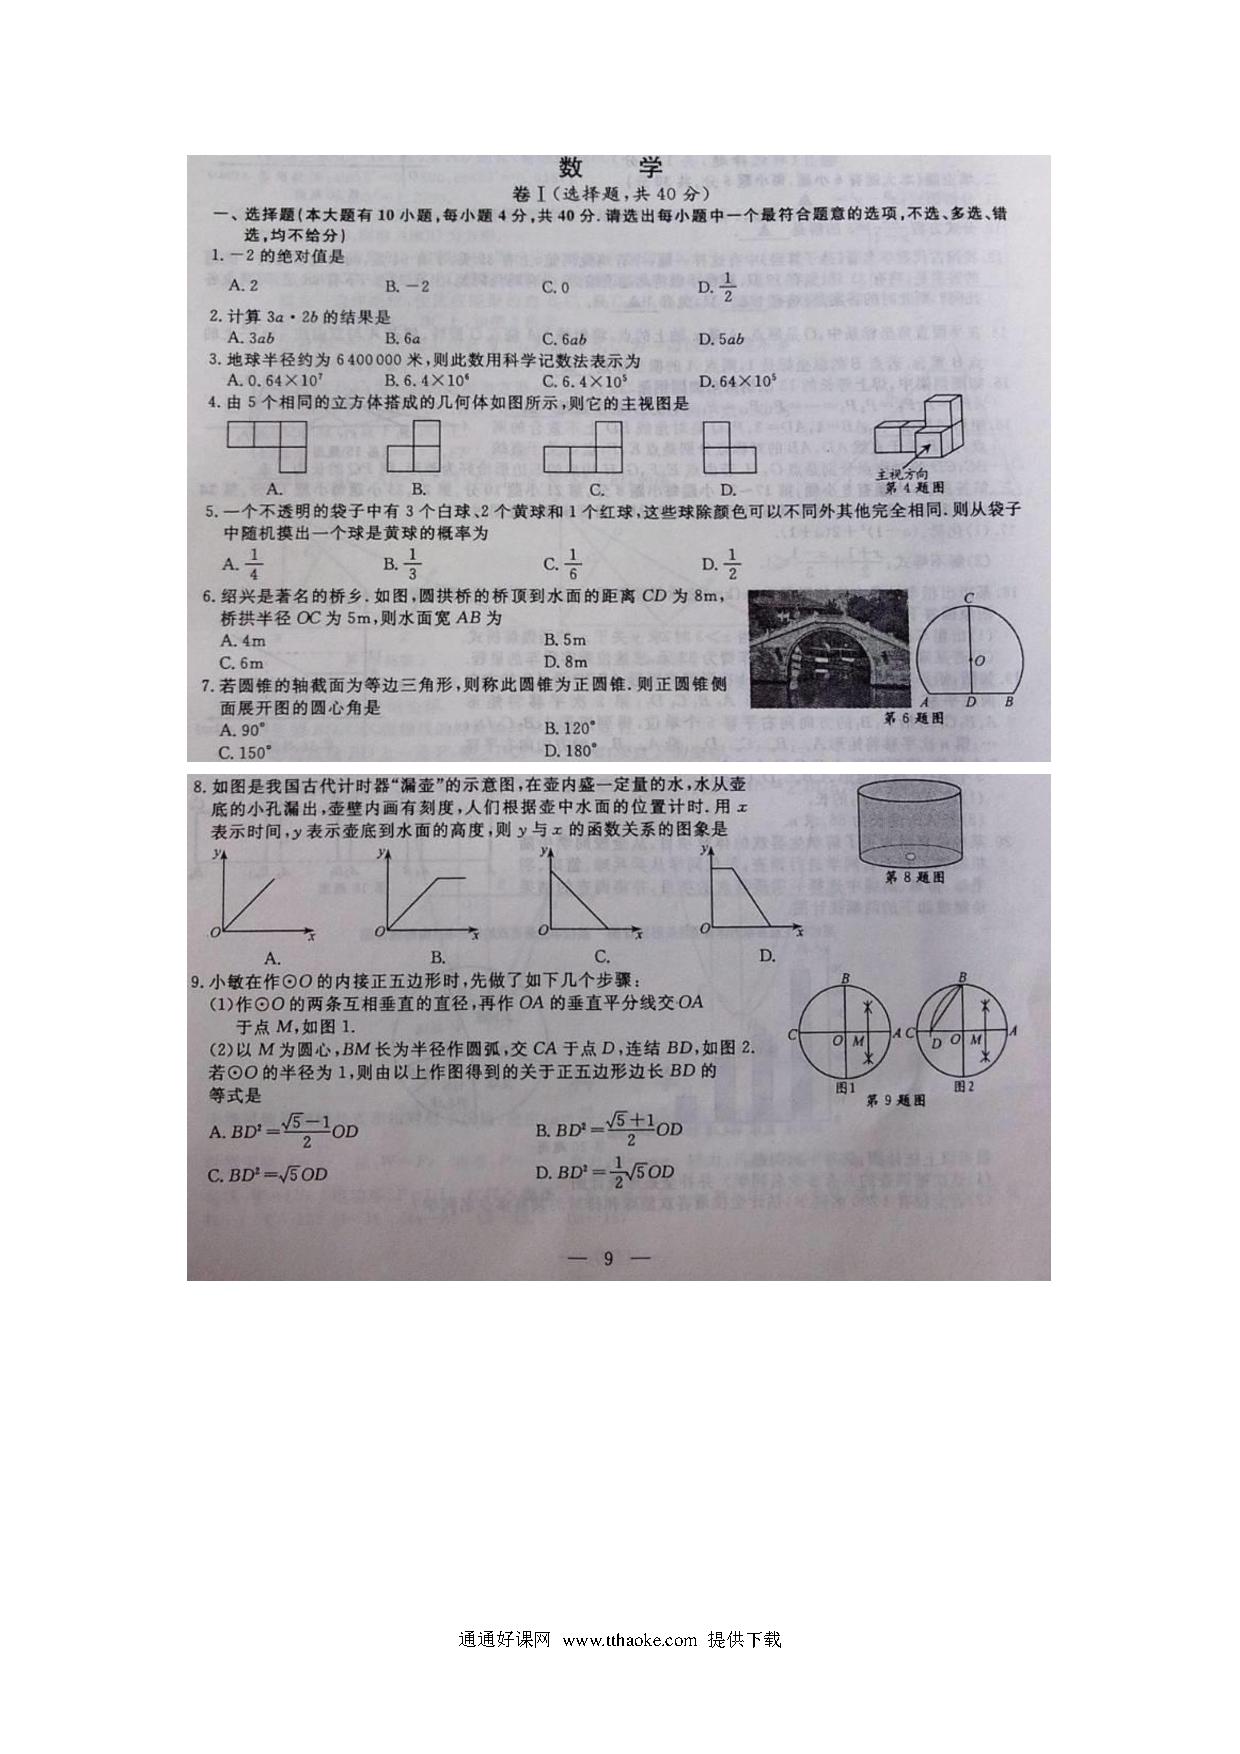 数 学
卷Ⅰ(选择题,共 40 分)
一、选择题(本大题有 10 小题,每小题 4 分,共 40 分.请选出每小题中一个最符合题意的选项,不选、多选、错
选,均不给分)
1.-2 的绝对值是
A. 2 B. -2 C. 0 D. 1/2
2.计算 3a·2b 的结果是
A. 3ab B. 6a C. 6ab D. 5ab
3.地球半径约为 6400000 米,则此数用科学记数法表示为
A. 0.64×10⁷ B. 6.4×10⁶ C. 6.4×10⁵ D. 64×10⁵
4.由 5 个相同的立方体搭成的几何体如图所示,则它的主视图是
主视方向
A. B. C. D. 第 4 题图
5.一个不透明的袋子中有 3 个白球、2 个黄球和 1 个红球,这些球除颜色可以不同外其他完全相同.则从袋子
中随机摸出一个球是黄球的概率为
A. 1/4 B. 1/3 C. 1/6 D. 1/2
6.绍兴是著名的桥乡.如图,圆拱桥的桥顶到水面的距离 CD 为 8m,
桥拱半径 OC 为 5m,则水面宽 AB 为
A. 4m B. 5m
C. 6m D. 8m
C
O
A D B
第 6 题图
7.若圆锥的轴截面为等边三角形,则称此圆锥为正圆锥.则正圆锥侧
面展开图的圆心角是
A. 90° B. 120°
C. 150° D. 180°
8.如图是我国古代计时器“漏壶”的示意图,在壶内盛一定量的水,水从壶
底的小孔漏出,壶壁内画有刻度,人们根据壶中水面的位置计时.用 x
表示时间,y 表示壶底到水面的高度,则 y 与 x 的函数关系的图象是
第 8 题图
y y y y
O x O x O x O x
A. B. C. D.
9.小敏在作⊙O 的内接正五边形时,先做了如下几个步骤:
(1)作⊙O 的两条互相垂直的直径,再作 OA 的垂直平分线交 OA
于点 M,如图 1.
(2)以 M 为圆心,BM 长为半径作圆弧,交 CA 于点 D,连结 BD,如图 2.
若⊙O 的半径为 1,则由以上作图得到的关于正五边形边长 BD 的
等式是
B B
C O M A C D O M A
图1 图2
第 9 题图
A. BD²=(√5-1)/2 OD B. BD²=(√5+1)/2 OD
C. BD²=√5OD D. BD²=1/2√5OD
— 9 —
通通好课网 www.tthaoke.com 提供下载